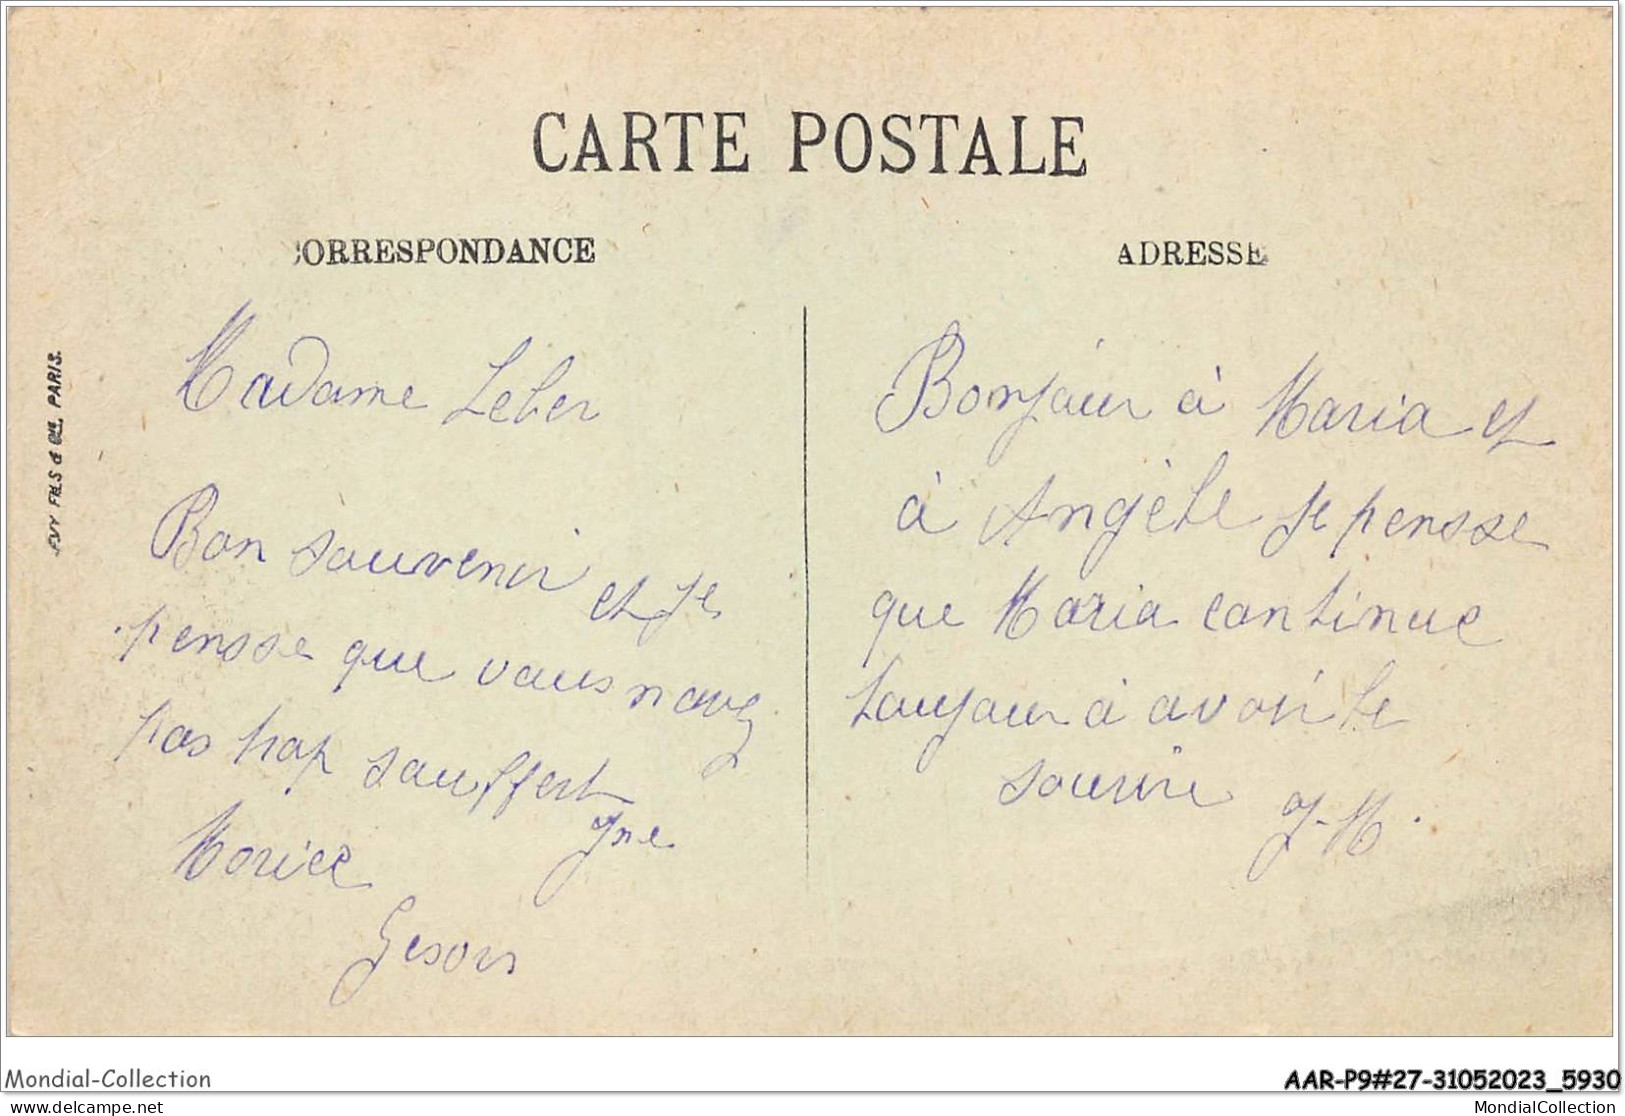 CARTE POSTALE
CORRESPONDANCE
Madame Leber
Bon souvenir et je
pensse que vous navez
pas trop souffert
Morice
ADRESSE
Bonjour à Maria et
à Angèle je pensse
que Maria continue
toujour à avoir le
sourire J-M.
FILS & Cie, PARIS.
Mondial-Collection
delcampe.net
AAR-P9#27-31052023_5930
MondialCollection